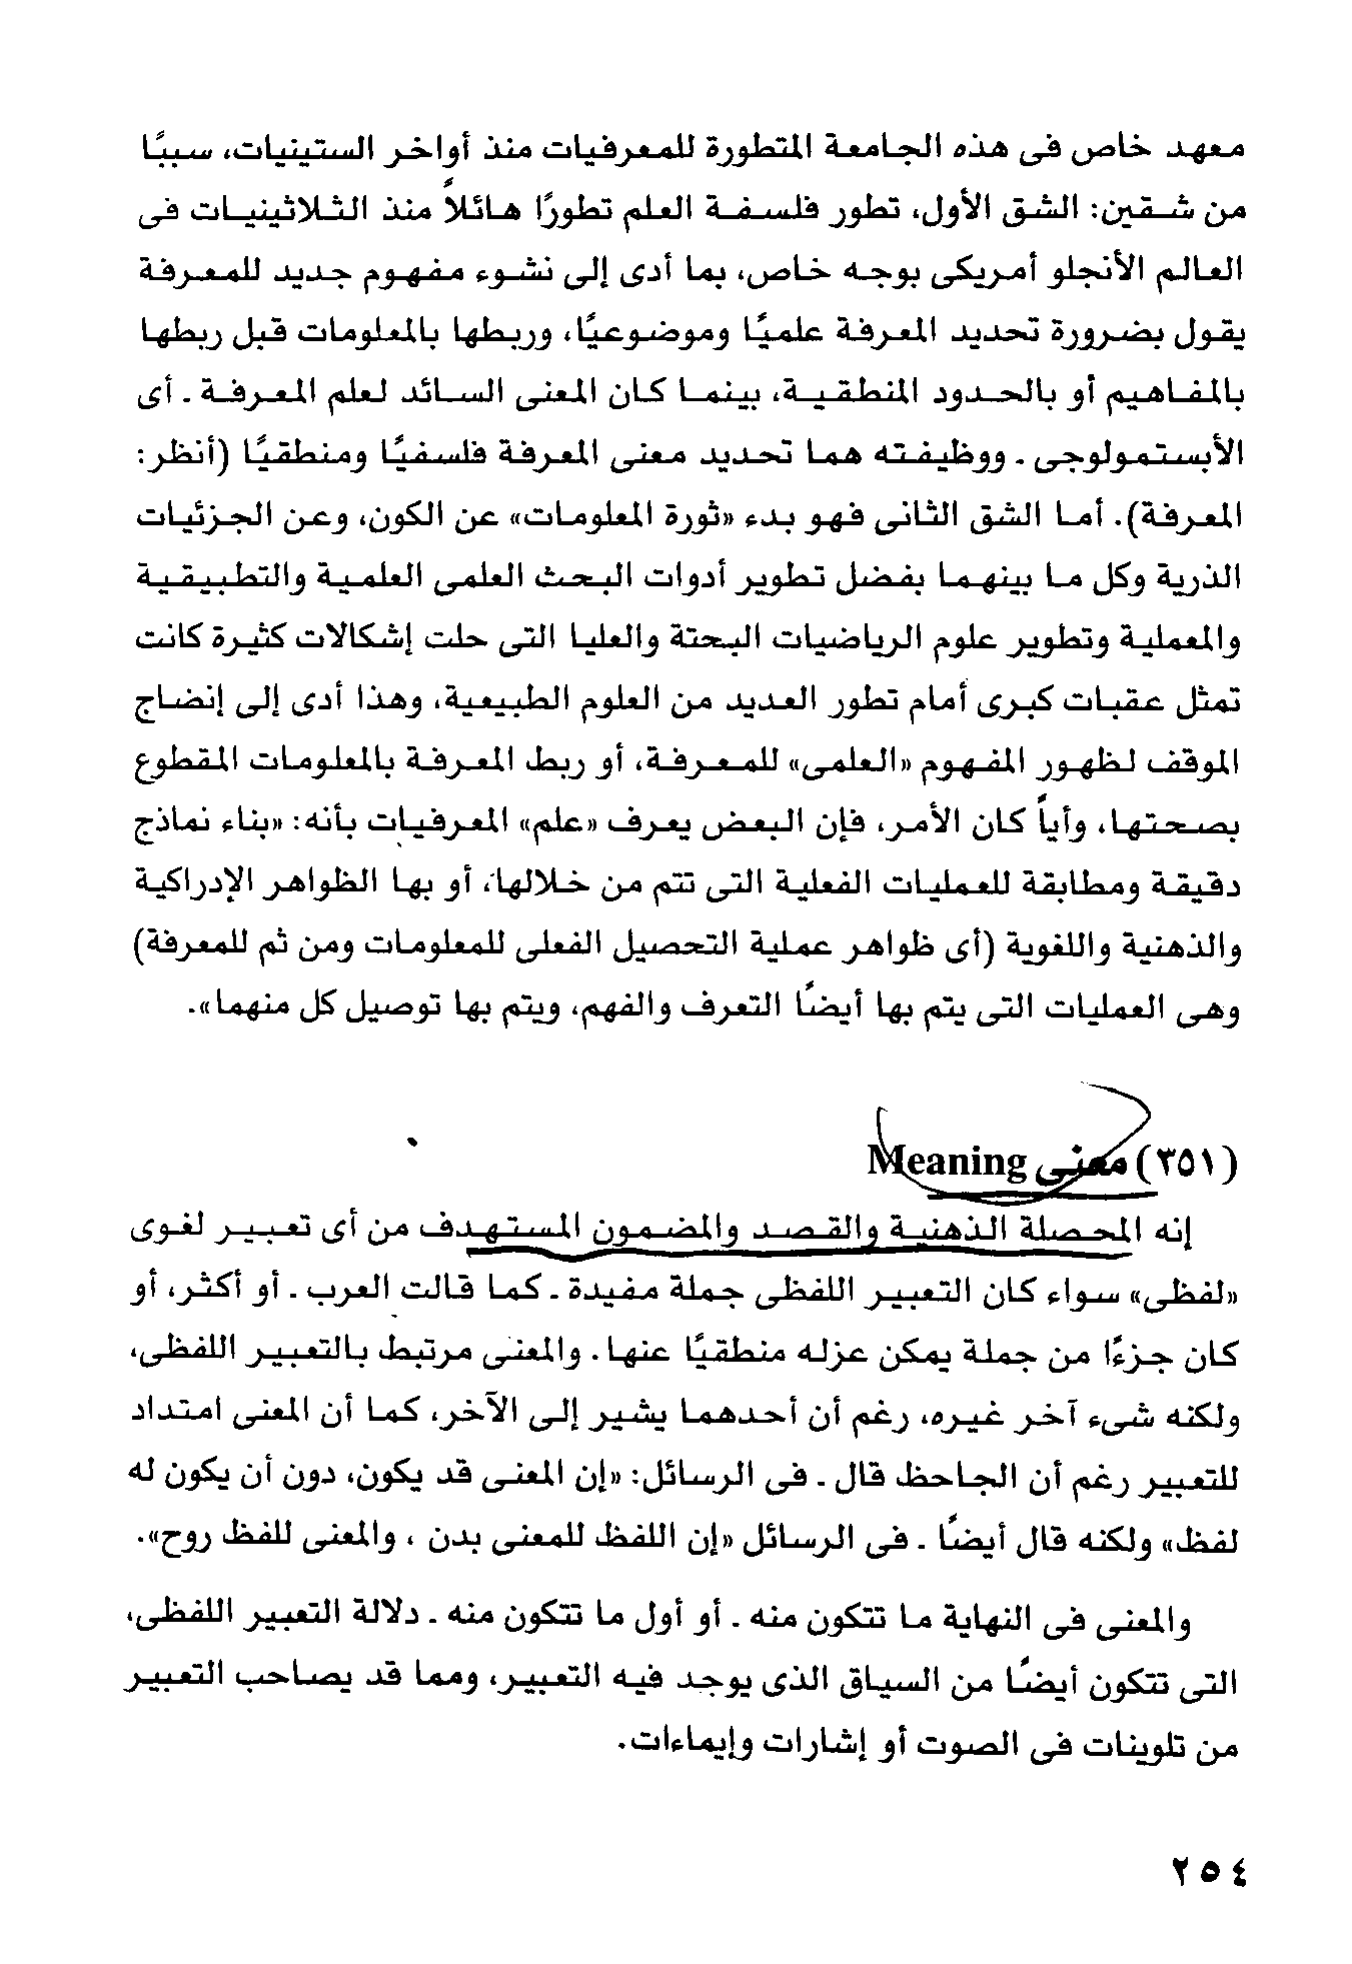 معهد خاص فى هذه الجامعة المتطورة للمعرفيات منذ أواخر الستينيات، سببًا
من شقين: الشق الأول، تطور فلسفة العلم تطورًا هائلاً منذ الثلاثينيات فى
العالم الأنجلو أمريكى بوجه خاص، بما أدى إلى نشوء مفهوم جديد للمعرفة
يقول بضرورة تحديد المعرفة علميًا وموضوعيًا، وربطها بالمعلومات قبل ربطها
بالمفاهيم أو بالحدود المنطقية، بينما كان المعنى السائد لعلم المعرفة - أى
الأبستمولوجى - ووظيفته هما تحديد معنى المعرفة فلسفيًا ومنطقيًا (أنظر:
المعرفة). أما الشق الثانى فهو بدء «ثورة المعلومات» عن الكون، وعن الجزئيات
الذرية وكل ما بينهما بفضل تطوير أدوات البحث العلمى العلمية والتطبيقية
والمعملية وتطوير علوم الرياضيات البحتة والعليا التى حلت إشكالات كثيرة كانت
تمثل عقبات كبرى أمام تطور العديد من العلوم الطبيعية، وهذا أدى إلى إنضاج
الموقف لظهور المفهوم «العلمى» للمعرفة، أو ربط المعرفة بالمعلومات المقطوع
بصحتها، وأياً كان الأمر، فإن البعض يعرف «علم» المعرفيات بأنه: «بناء نماذج
دقيقة ومطابقة للعمليات الفعلية التى تتم من خلالها، أو بها الظواهر الإدراكية
والذهنية واللغوية (أى ظواهر عملية التحصيل الفعلى للمعلومات ومن ثم للمعرفة)
وهى العمليات التى يتم بها أيضًا التعرف والفهم، ويتم بها توصيل كل منهما».
(٣٥١) معنى Meaning
إنه المحصلة الذهنية والقصد والمضمون المستهدف من أى تعبير لغوى
«لفظى» سواء كان التعبير اللفظى جملة مفيدة - كما قالت العرب - أو أكثر، أو
كان جزءًا من جملة يمكن عزله منطقيًا عنها. والمعنى مرتبط بالتعبير اللفظى،
ولكنه شىء آخر غيره، رغم أن أحدهما يشير إلى الآخر، كما أن المعنى امتداد
للتعبير رغم أن الجاحظ قال - فى الرسائل: «إن المعنى قد يكون، دون أن يكون له
لفظ» ولكنه قال أيضًا - فى الرسائل «إن اللفظ للمعنى بدن ، والمعنى للفظ روح».
والمعنى فى النهاية ما تتكون منه - أو أول ما تتكون منه - دلالة التعبير اللفظى،
التى تتكون أيضًا من السياق الذى يوجد فيه التعبير، ومما قد يصاحب التعبير
من تلوينات فى الصوت أو إشارات وإيماءات.
٢٥٤